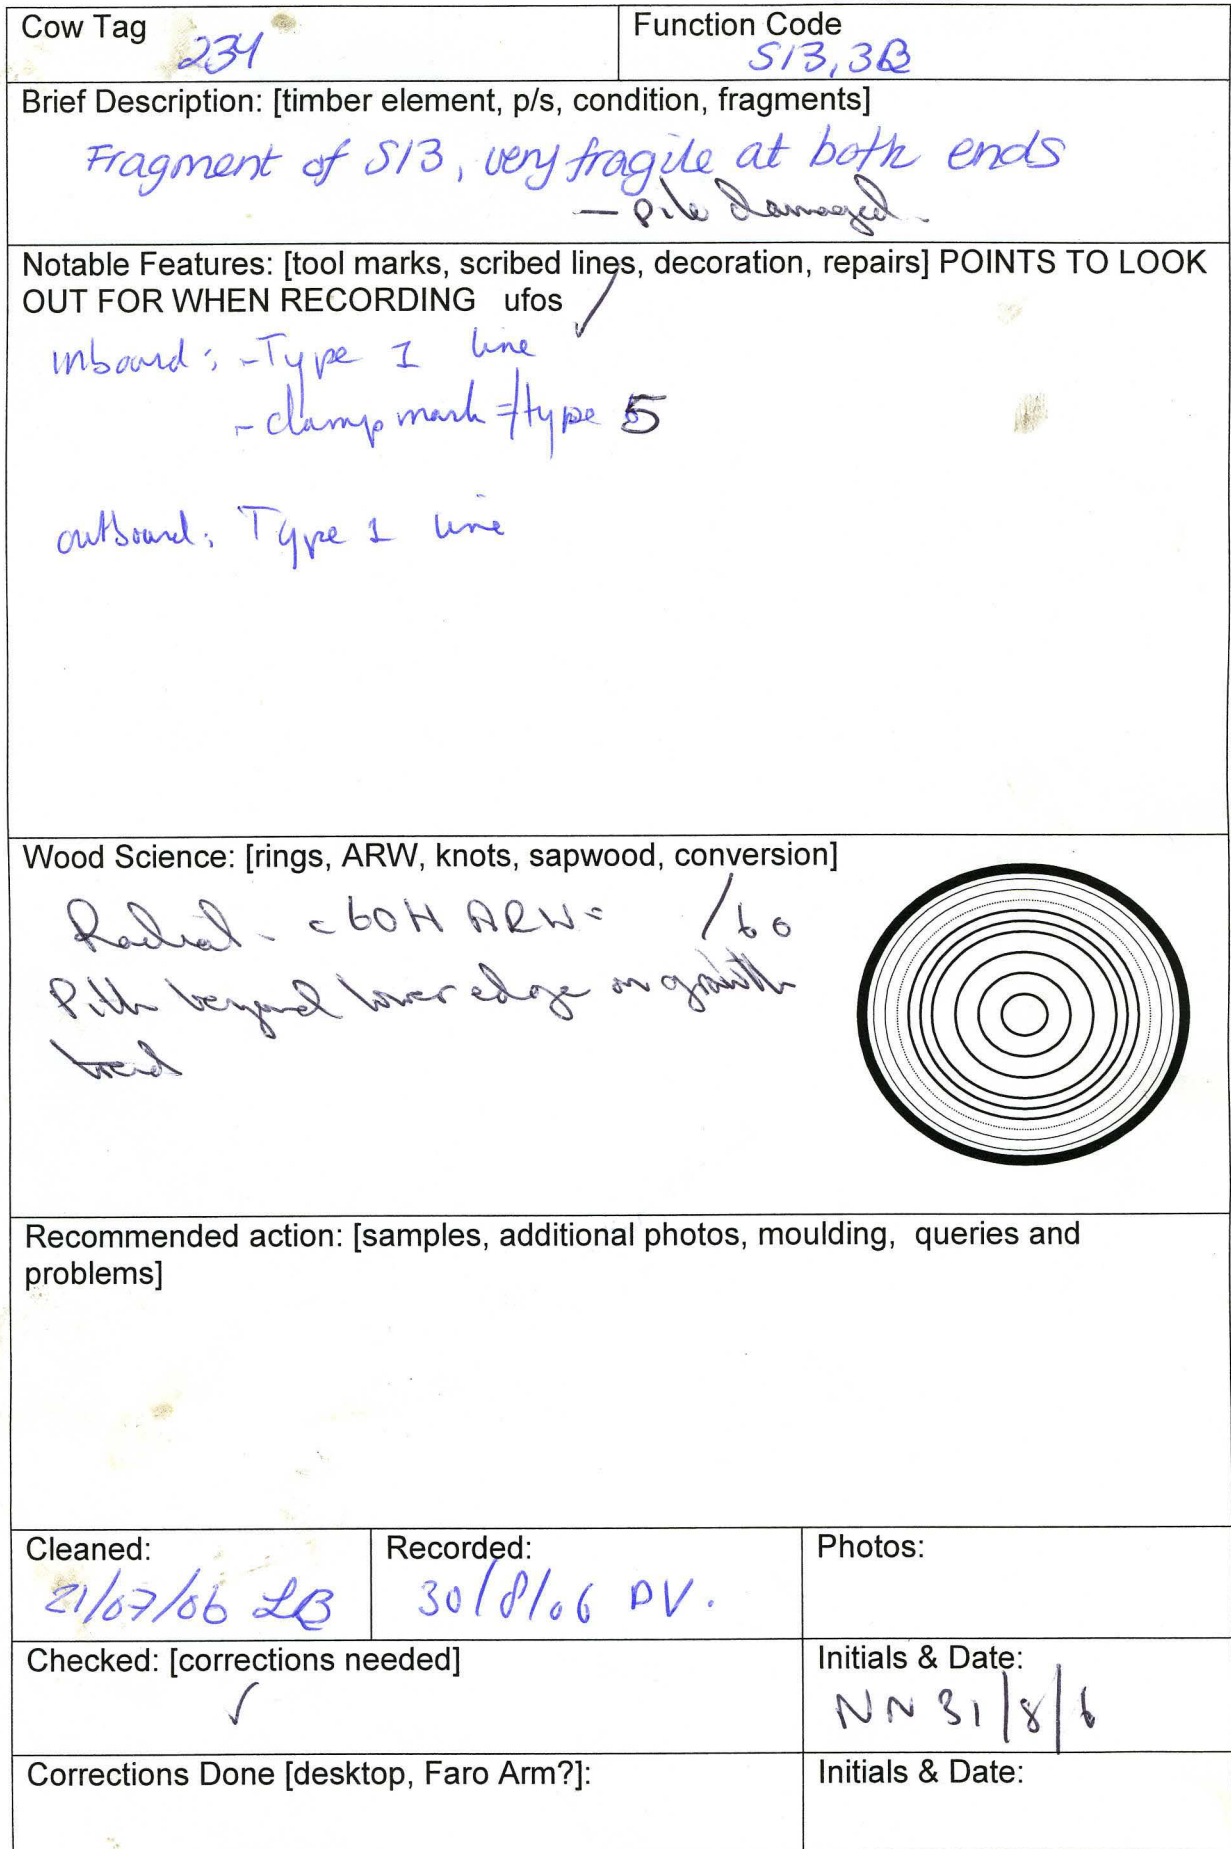 Cow Tag
234
Function Code
S13, 3B
Brief Description: [timber element, p/s, condition, fragments]
Fragment of S13, very fragile at both ends
— pile damaged.
Notable Features: [tool marks, scribed lines, decoration, repairs] POINTS TO LOOK
OUT FOR WHEN RECORDING ufos
inboard: - Type 1 line
- clamp mark type 5
outboard: Type 1 line
Wood Science: [rings, ARW, knots, sapwood, conversion]
Radial - c60H ARW= /60
Pith beyond lower edge on growth
trend
Recommended action: [samples, additional photos, moulding, queries and
problems]
Cleaned:
21/07/06 LB
Recorded:
30/8/06 PV.
Photos:
Checked: [corrections needed]
✓
Initials & Date:
NN 31/8/6
Corrections Done [desktop, Faro Arm?]:
Initials & Date: